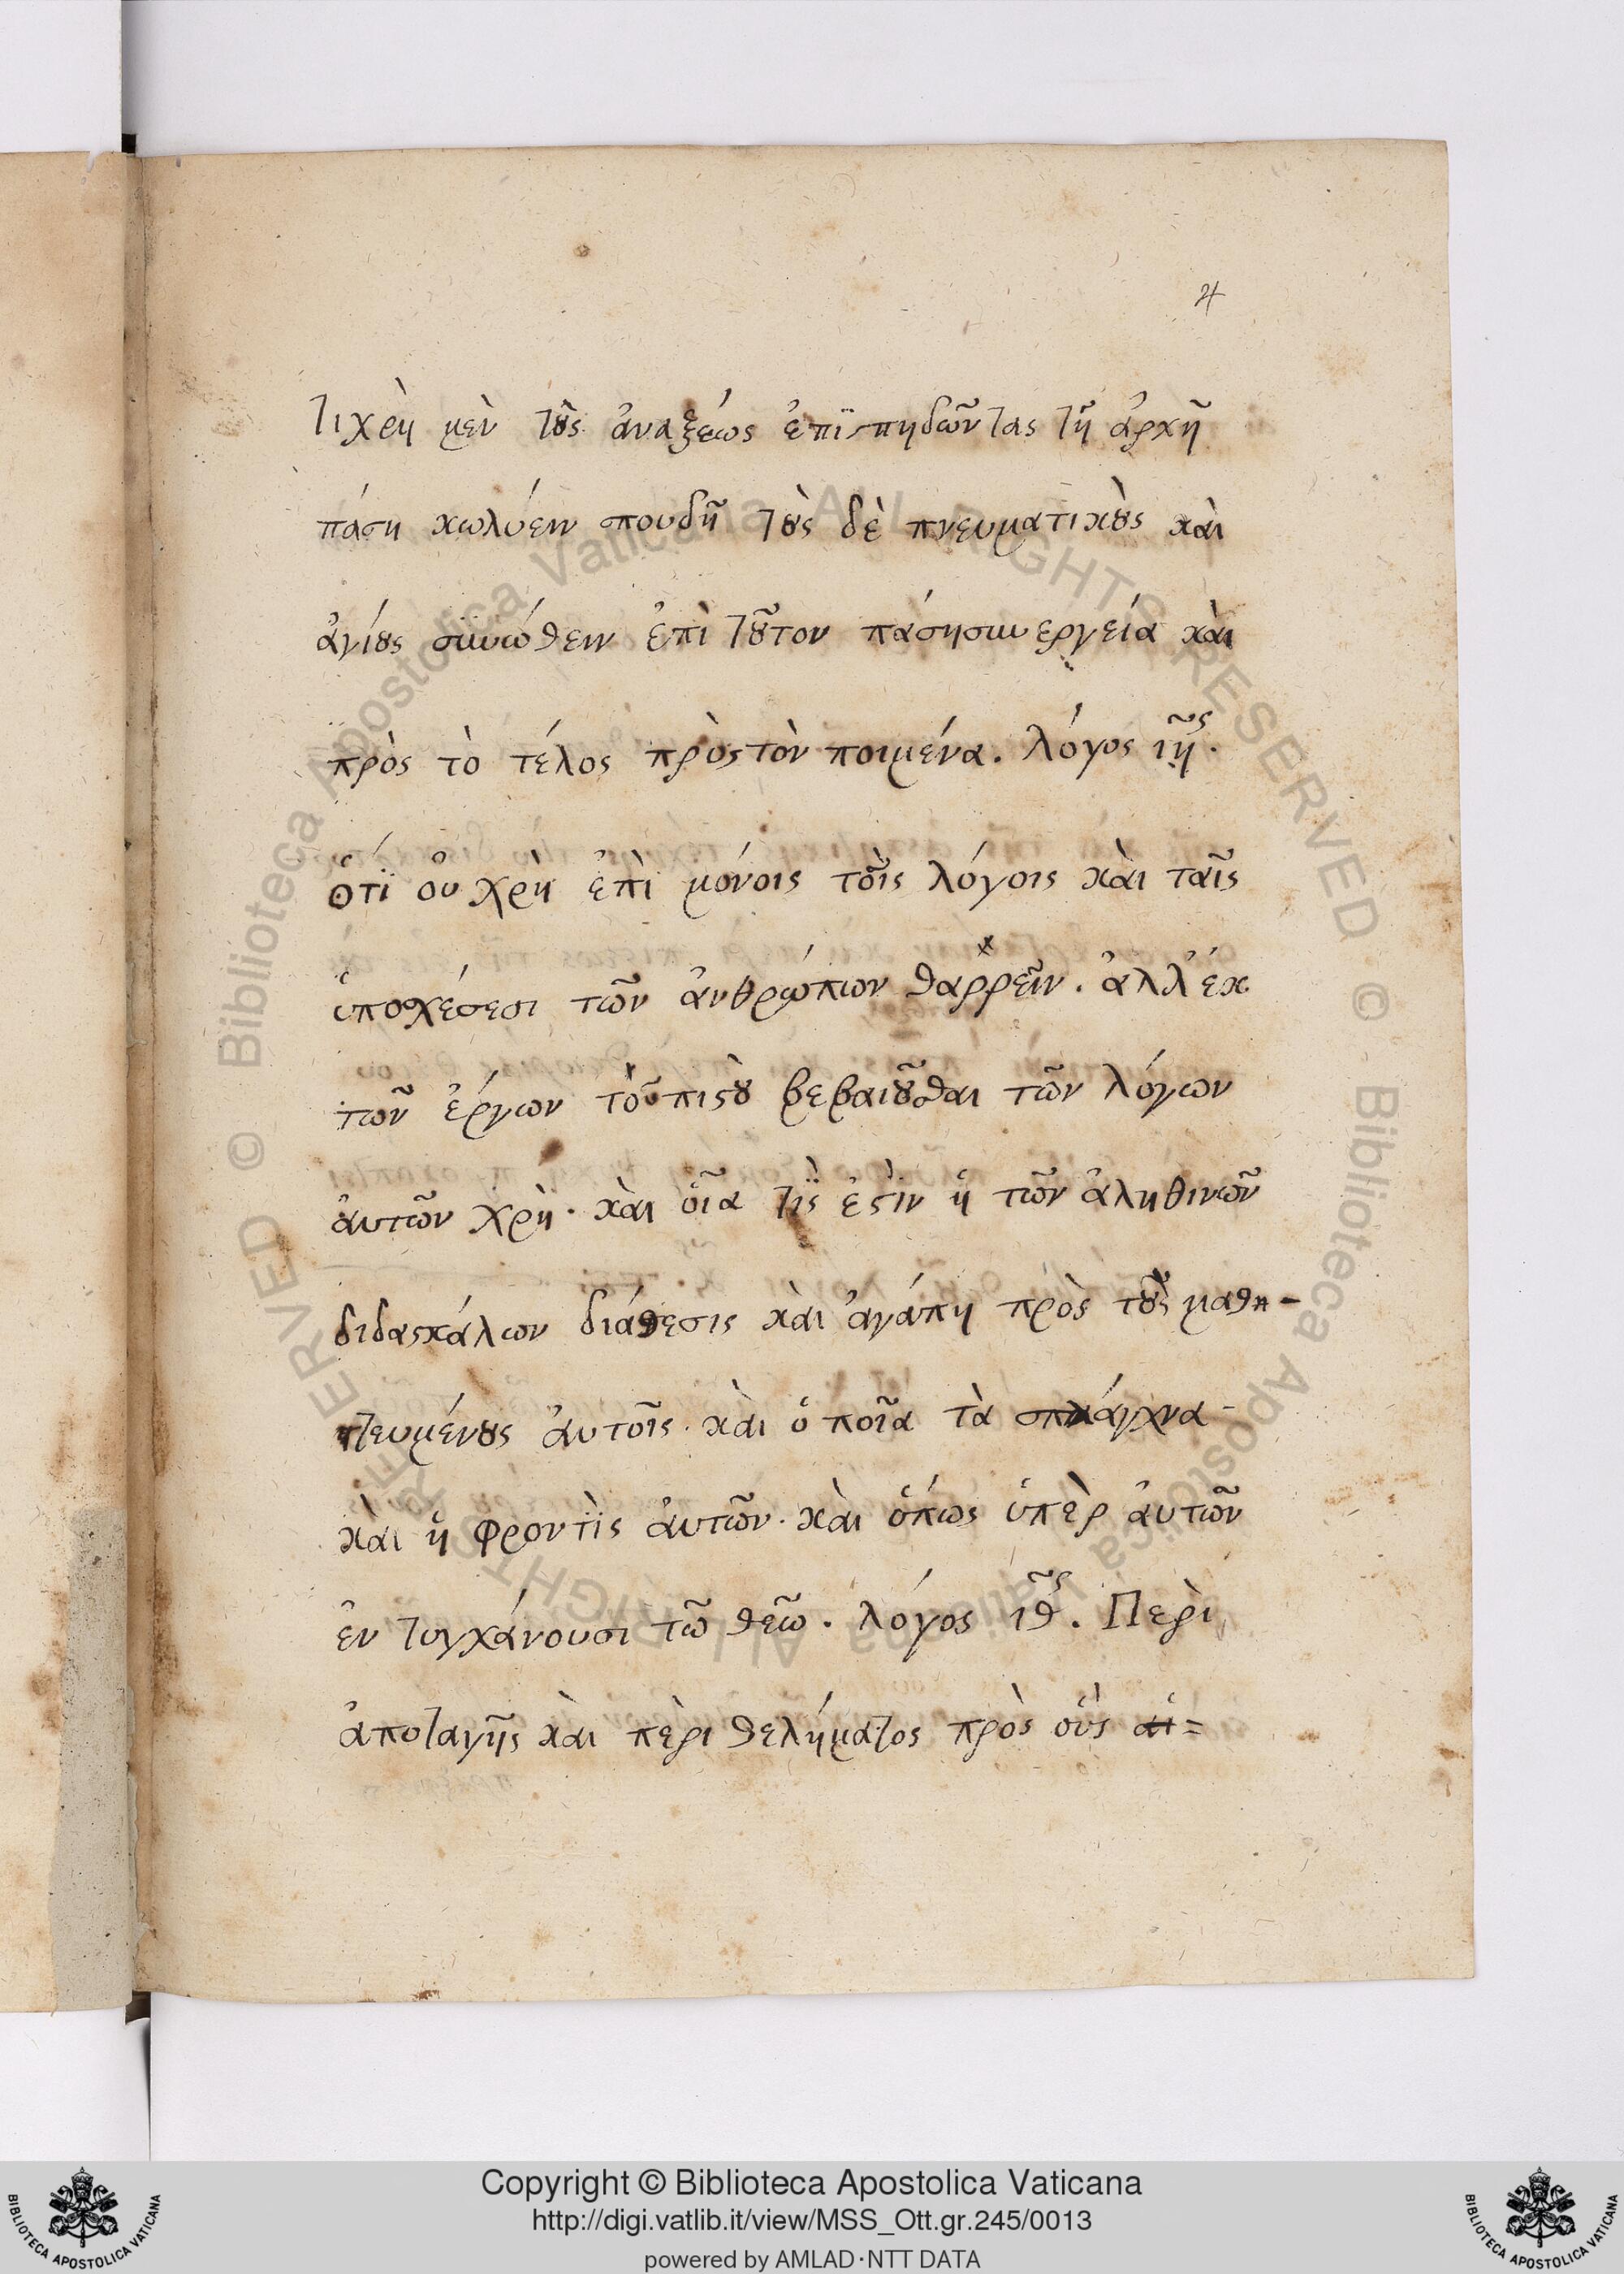 4
τι χρὴ μὲν τοὺς ἀναξίως ἐπϊσπηδῶντας τῇ ἀρχῇ
πάση κωλύειν σπουδῆ τοὺς δὲ πνευματικοὺς καὶ
ἁγίους συνώθειν ἐπὶ τοῦτον πάσησυνεργεία καὶ
πρὸς τὸ τέλος πρὸς τὸν ποιμένα. λόγος ιῆς.
ὅτϊ ου χρὴ ἐπὶ μόνοις τοῖς λόγοις καὶ ταῖς
ὑποσχέσεσι τῶν ἀνθρώπων θαῤῥεῖν. ἀλλ' ἐκ
τῶν ἔργων τὸ πιστοὺ βεβαιοῦσθαι τῶν λόγων
ἀυτῶν χρὴ· καὶ οἵα τῒς ἐστὶν ἡ τῶν ἀληθινῶν
διδασκάλων διάθεσις καὶ ἀγάπη πρὸς τοὺς μαθη-
τευμένους ἀυτοῖς· καὶ ὁ ποῖα τὰ σπλάγχνα-
καὶ ἡ φροντὶς ἀυτῶν· καὶ ὅπως ὑπὲρ ἀυτῶν
ἐν τυγχάνουσι τῶ θεῶ. λόγος ιθ͂ς. Περὶ
ἀποταγῆς καὶ πὲρι θελήματος πρὸς οὓς αἰ=
Biblioteca Apostolica Vaticana ALL RIGHTS RESERVED © Biblioteca Apostolica Vaticana ALL RIGHTS RESERVED ©
Copyright © Biblioteca Apostolica Vaticana
http://digi.vatlib.it/view/MSS_Ott.gr.245/0013
powered by AMLAD·NTT DATA
BIBLIOTECA APOSTOLICA VATICANA
BIBLIOTECA APOSTOLICA VATICANA